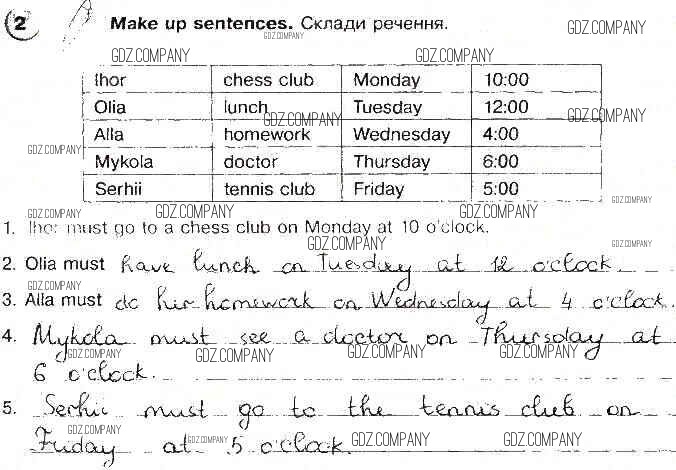 2 Make up sentences. Склади речення.
GDZ.COMPANY
GDZ.COMPANY
GDZ.COMPANY GDZ.COMPANY
Ihor chess club Monday 10:00
Olia lunch Tuesday 12:00
GDZ.COMPANY GDZ.COMPANY
Alla homework Wednesday 4:00
GDZ.COMPANY
Mykola doctor Thursday 6:00
Serhii tennis club Friday 5:00
GDZ.COMPANY
GDZ.COMPANY GDZ.COMPANY GDZ.COMPANY
1. Ihor must go to a chess club on Monday at 10 o'clock.
GDZ.COMPANY GDZ.COMPANY
2. Olia must have lunch on Tuesday at 12 o'clock.
GDZ.COMPANY
3. Alla must do her homework on Wednesday at 4 o'clock.
4. Mykola must see a doctor on Thursday at
GDZ.COMPANY GDZ.COMPANY GDZ.COMPANY GDZ.COMPANY
6 o'clock.
5. Serhii must go to the tennis club on
GDZ.COMPANY
Friday at 5 o'clock.
GDZ.COMPANY GDZ.COMPANY GDZ.COMPANY